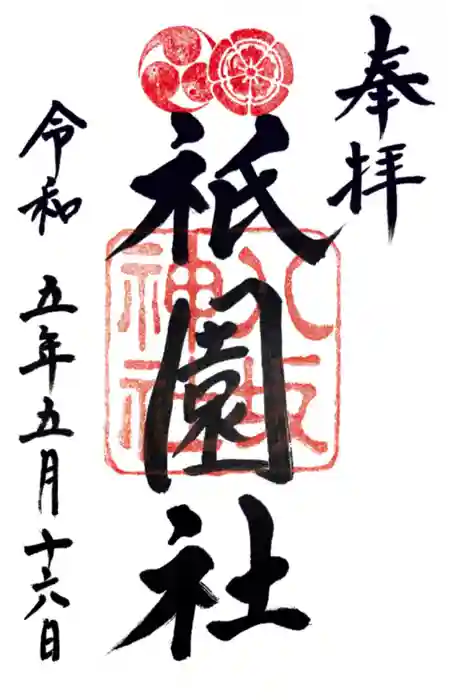 奉拝
祇園社
八坂
神社
令和 五年五月十六日